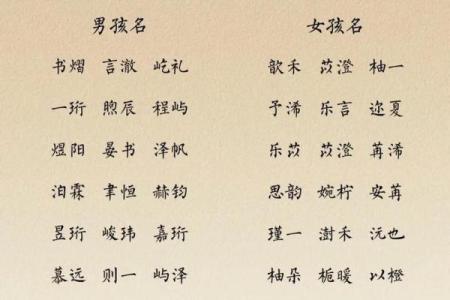 男孩名 女孩名
书熠 言澈 屹礼 歆禾 苡澄 柚一
一珩 煦辰 程屿 予浠 乐言 迩夏
煜阳 晏书 泽帆 乐苡 苡澄 苒浠
洎霖 聿恒 赫钧 思韵 婉柠 安苒
昱珩 峻玮 嘉珩 瑾一 澍禾 沅也
慕远 则一 屿泽 柚朵 栀暖 以橙